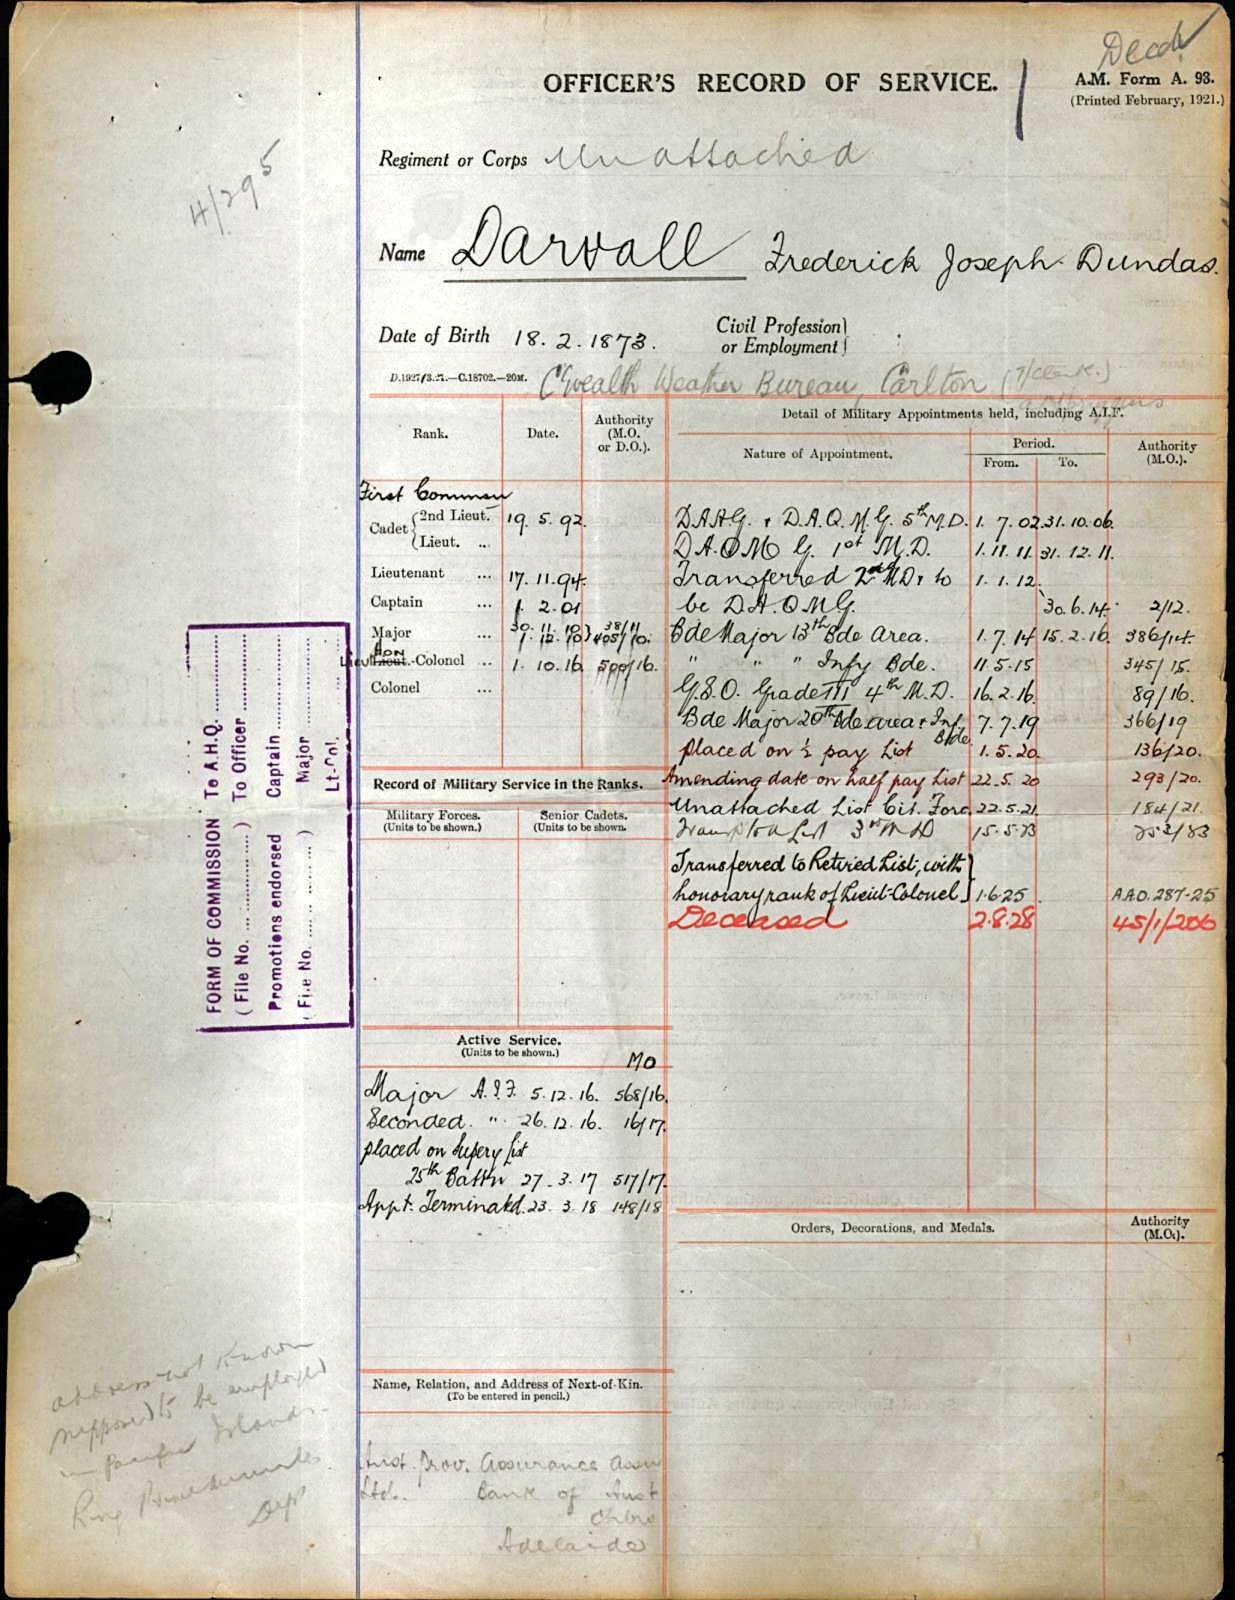 Dead
OFFICER'S RECORD OF SERVICE.
A.M. Form A. 93.
(Printed February, 1921.)
4/295
Regiment or Corps Unattached
Name Darvall Frederick Joseph Dundas.
Date of Birth 18. 2. 1873.
Civil Profession
or Employment
D.1927/3.21.—C.18702.—20M.
C'wealth Weather Bureau, Carlton
Rank. Date. Authority (M.O. or D.O.).
First Common
Cadet 2nd Lieut. 19. 5. 92.
Lieut. ...
Lieutenant ... 17. 11. 94.
Captain ... 1. 2. 01
Major ... 30. 11. 10 38/11
1. 12. 10 405/10.
Hon
Lieut.-Colonel ... 1. 10. 16. 500/16.
Colonel ...
Detail of Military Appointments held, including A.I.F.
Nature of Appointment. Period. From. To. Authority (M.O.).
D.A.A.G. & D.A.Q.M.G. 5th M.D. 1. 7. 02 31. 10. 06.
D.A.Q.M.G. 1st M.D. 1. 11. 11 31. 12. 11.
Transferred 2nd M.D. & to 1. 1. 12.
be D.A.Q.M.G. 30. 6. 14. 2/12.
Bde Major 13th Bde area. 1. 7. 14 15. 2. 16. 386/14.
" " " Infy Bde. 11. 5. 15 345/15.
G.S.O. Grade III 4th M.D. 16. 2. 16. 89/16.
Bde Major 20th Bde area & Inf Bde 7. 7. 19 366/19
placed on ½ pay List 1. 5. 20. 136/20.
Amending date on half pay List 22. 5. 20 293/20.
Unattached List Cit. Forc. 22. 5. 21. 184/21.
3rd M.D 15. 5. 23
Transferred to Retired List, with
honorary rank of Lieut-Colonel 1. 6. 25 A.A.O. 287-25
Deceased 2. 8. 28 45/1/206
Record of Military Service in the Ranks.
Military Forces.
(Units to be shown.)
Senior Cadets.
(Units to be shown.
Active Service.
(Units to be shown.)
MO
Major A.I.F. 5. 12. 16. 568/16.
Seconded. " 26. 12. 16. 16/17.
placed on Supery List
25th Battn 27. 3. 17 517/17.
Appt. Terminated. 23. 3. 18 148/18
Orders, Decorations, and Medals. Authority (M.O.).
Name, Relation, and Address of Next-of-Kin.
(To be entered in pencil.)
Aust. Prov. Assurance Assn
Ltd. Bank of Aust
Chbrs
Adelaide
FORM OF COMMISSION To A.H.Q.
(File No. ) To Officer
Promotions endorsed Captain
(File No. ) Major
Lt-Col.
address not known
supposed to be employed
in Pacific Islands.
Dept